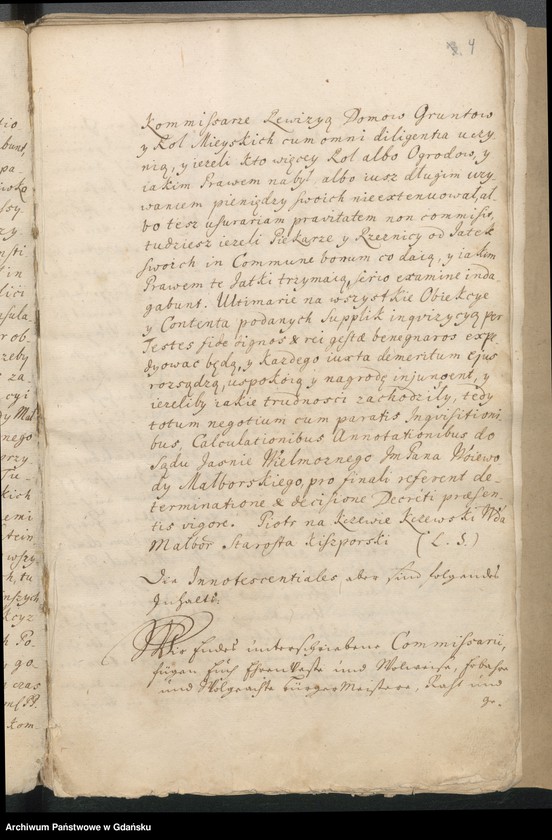 4
Kommissarze Rewizyą Domow Gruntow
y Rol Mieyskich cum omni diligentia uczy-
nią, y ieżeli kto więcey Rol albo Ogrodow, y
iakim Prawem nabył albo iusz długim uzy-
waniem pieniędzy swoich nie extenuował, al-
bo tesz usurariam pravitatem non commisit,
tudziesz ieżeli Piekarze y Rzeznicy od Jatek
swoich in Commune bonum co daią, y iakim
Prawem te Jatki trzymaią, serio examine inda-
gabunt. Ultimarie na wszystkie Obiekcye
y Contenta podanych Supplik inqvizycyą per
Testes fide dignos & rei gestæ benegnaros expe-
dyować będą, y każdego iuxta demeritum ejus
rozsądzą, uspokoią y nagrodę injungent, y
ieżeliby iakie trudności zachodziły, tedy
totum negotium cum paratis Inqvisitioni-
bus, Calculationibus Annotationibus do
Sądu Jasnie Wielmoznego Jm Pana Woiewo-
dy Malborskiego, pro finali referent de-
terminatione & decisione Decreti præsen-
tis vigore. Piotr na Kczewie Kczewski Wda
Malbor Starosta Kiszporski (L. S.)
Die Innotescentiales aber sind folgendes
Inhalts.
Wir Endes unterschriebene Commissarii,
fügen Euch Ehrenveste und Wolweise, Erbahre
und Wolgeachte Bürger Meistere, Raht und
Archiwum Państwowe w Gdańsku